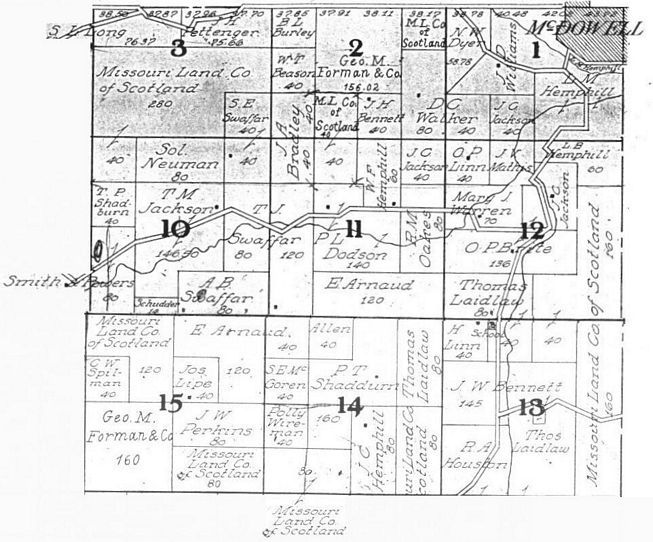 38.56 37.87 37.96 37.70 37.85 37.91 38.11 38.17 38.78 40.48
McDOWELL
S L Long
76.37
J. H.
Pettenger
75.66
B L
Burley
M.L Co.
of
Scotland
N W
Dyer
58.78
J D
Williams
3
2
1
Missouri Land Co
of Scotland
280
W T
Beason
40
Geo. M.
Forman & Co.
156.02
L M
Hemphill
S. E.
Swaffar
40
J. A.
Bradley
40
M.L Co.
of
Scotland
40
J. H
Bennett
40
D C
Walker
80 40
J C
Jackson
40
40
40
40
Sol.
Neuman
80
40
40
W F
Hemphill
80
J C
Jackson
40
O. P.
Linn
40
J. K
Mathis
L B
Hemphill
60
T. P.
Shad-
burn
40
T M
Jackson
T. J.
Swaffar
80 120
10
146.50
11
P L
Dodson
140
R. M.
Oakes
80
Mary J
Warren
70
J C
Jackson
12
O. P. Brite
136
Missouri Land Co. of Scotland
160
Smith N Powers
80
Schudder
A B
Swaffar
80
E Arnaud
120
Thomas
Laidlaw
80
Missouri
Land Co.
of Scotland
E Arnaud
40
Allen
40
40
H
Linn
40
School
40
40
C. W.
Spil-
man
40
120
Jos.
Lipe
40
120
S.E. Mc
Goren
40
P T
Shadburn
160
Thomas
Laidlaw
80
J. W Bennett
145
15
14
13
Geo. M.
Forman & Co
160
J W
Perkins
80
Polly
Wire-
man
40
J C
Hemphill
80
uri Land Co
cotland
80
R A
Houston
Thos
Laidlaw
Missouri Land Co. of Scotland
160
Missouri
Land Co.
of Scotland
80
80
Missouri
Land Co.
of Scotland